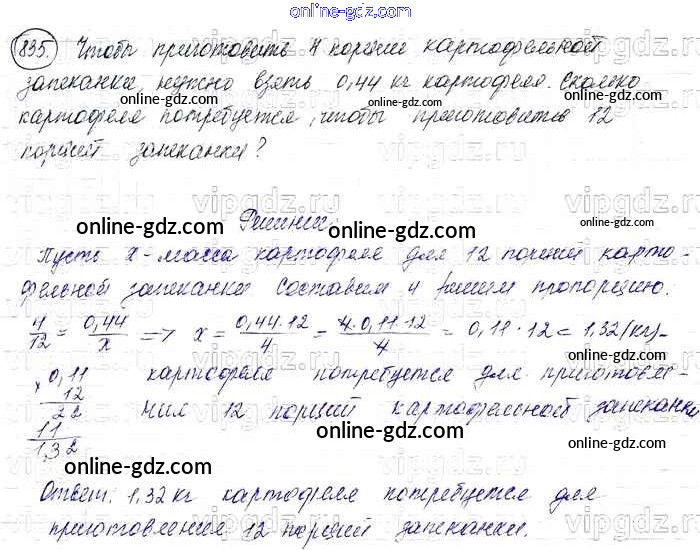 online-gdz.com
835. Чтобы приготовить 4 порции картофельной
запеканки, нужно взять 0,44 кг картофеля. Сколько
online-gdz.com online-gdz.com
картофеля потребуется, чтобы приготовить 12
порций запеканки?
online-gdz.com
Решение:
online-gdz.com online-gdz.com
Пусть x - масса картофеля для 12 порций карто-
online-gdz.com
фельной запеканки. Составим и решим пропорцию.
4/12 = 0,44/x => x = 0,44·12/4 = 4·0,11·12/4 = 0,11·12 = 1,32 (кг) -
online-gdz.com online-gdz.com
× 0,11 картофеля потребуется для приготовле-
12
22 ния 12 порций картофельной запеканки
11
1,32
online-gdz.com
online-gdz.com online-gdz.com
Ответ: 1,32 кг картофеля потребуется для
приготовления 12 порций запеканки.
online-gdz.com
vipgdz.ru